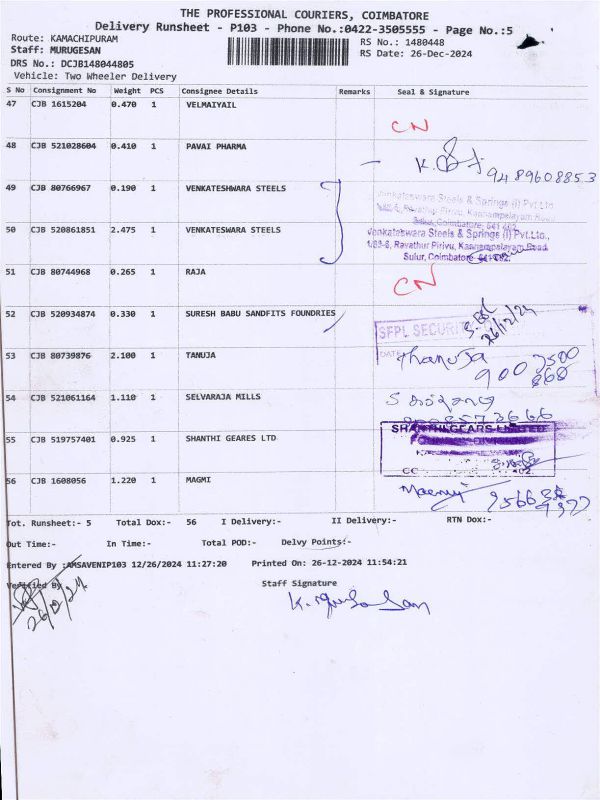 THE PROFESSIONAL COURIERS, COIMBATORE
Delivery Runsheet - P103 - Phone No.:0422-3505555 - Page No.:5
Route: KAMACHIPURAM
RS No.: 1480448
Staff: MURUGESAN
RS Date: 26-Dec-2024
DRS No.: DCJB148044805
Vehicle: Two Wheeler Delivery
S No Consignment No Weight PCS Consignee Details Remarks Seal & Signature
47 CJB 1615204 0.470 1 VELMAIYAIL
CN
48 CJB 521028604 0.410 1 PAVAI PHARMA
9489608853
49 CJB 80766967 0.190 1 VENKATESHWARA STEELS
Venkateswara Steels & Springs (I) Pvt.Ltd
50 CJB 520861851 2.475 1 VENKATESWARA STEELS
Venkateswara Steels & Springs (I) Pvt.Ltd.,
1/89-6, Ravathur Pirivu, Kannampalayam Road
Sulur, Coimbatore- 641 402.
51 CJB 80744968 0.265 1 RAJA
CN
52 CJB 520934874 0.330 1 SURESH BABU SANDFITS FOUNDRIES
26/12/24
SFPL SECURITY
DATE
53 CJB 80739876 2.100 1 TANUJA
Thanuja
54 CJB 521061164 1.110 1 SELVARAJA MILLS
55 CJB 519757401 0.925 1 SHANTHI GEARES LTD
SHANTHI GEARS LIMITED
56 CJB 1608056 1.220 1 MAGMI
Tot. Runsheet:- 5 Total Dox:- 56 I Delivery:- II Delivery:- RTN Dox:-
Out Time:- In Time:- Total POD:- Delvy Points:-
Entered By :AMSAVENIP103 12/26/2024 11:27:20 Printed On: 26-12-2024 11:54:21
Verified By
Staff Signature
26/12/24